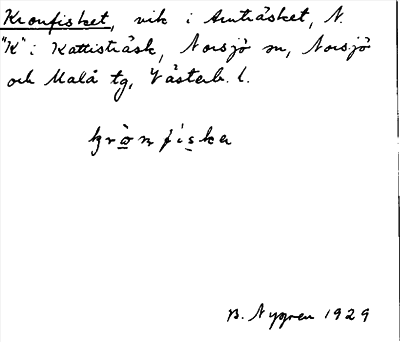 Kronfisket, vik i Avaträsket, N.
"K" i Kattisträsk, Norsjö sn, Norsjö
och Malå tg, Västerb. l.
krònfíska
B. Nygren 1929